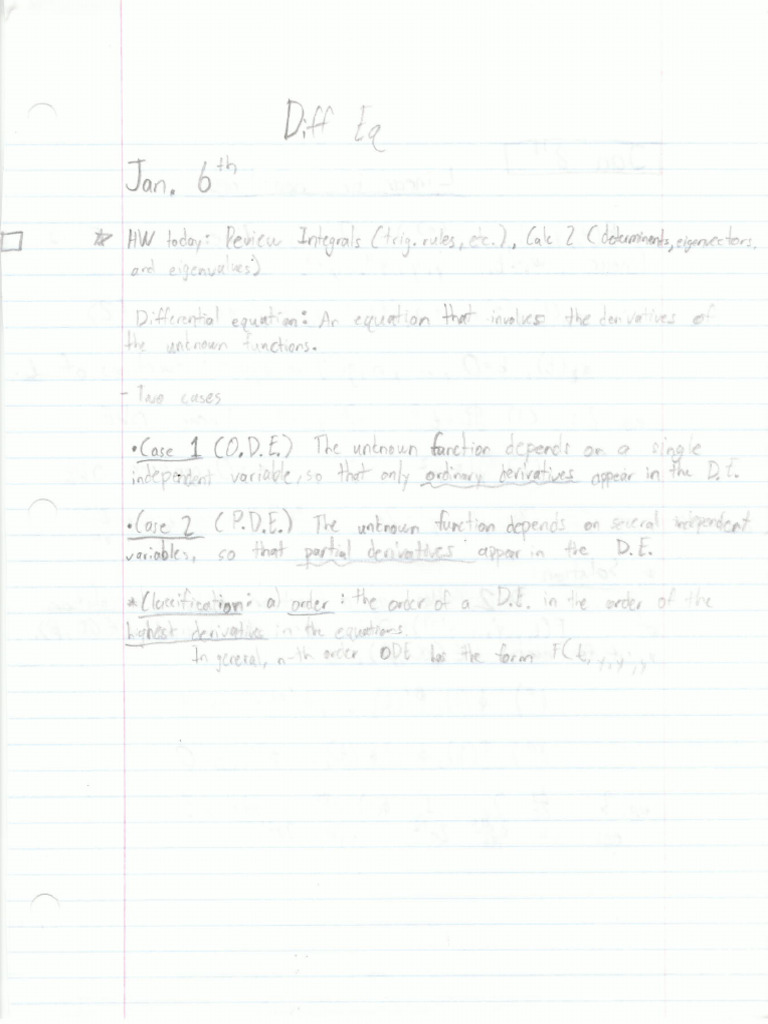 Diff Eq
Jan. 6th
☆ HW today: Review Integrals (trig. rules, etc.), Calc 2 (determinants, eigenvectors,
and eigenvalues)
Differential equation: An equation that involves the derivatives of
the unknown functions.
- Two cases
• Case 1 (O.D.E.) The unknown function depends on a single
independent variable, so that only ordinary derivatives appear in the D.E.
• Case 2 (P.D.E.) The unknown function depends on several independent
variables, so that partial derivatives appear in the D.E.
* Classification: a) order: the order of a D.E. in the order of the
highest derivative in the equations.
In general, n-th order ODE has the form F(t, y, y', y''